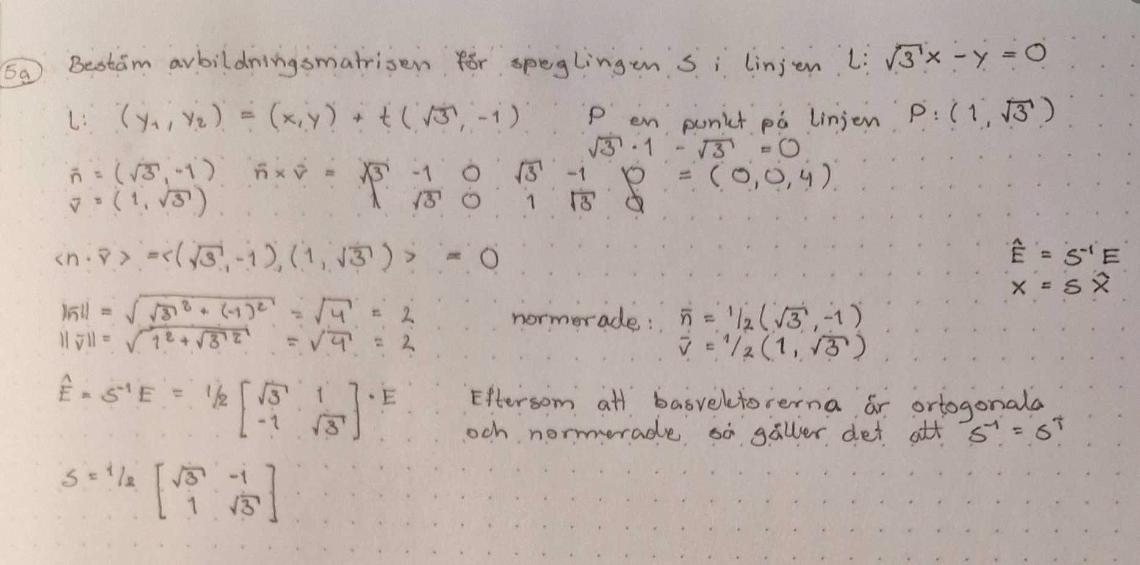 5a) Bestäm avbildningsmatrisen för speglingen S i linjen L: √3x - y = 0
L: (y₁, y₂) = (x,y) + t(√3, -1) P en punkt på linjen P: (1, √3)
√3·1 - √3 = 0
n̄ = (√3, -1) n̄ × v̄ = √3 -1 0 √3 -1 0 = (0,0,4)
v̄ = (1, √3) 1 √3 0 1 √3 0
<n·v̄> = <(√3, -1), (1, √3)> = 0
Ê = S⁻¹E
X = S X̂
||n̄|| = √(√3² + (-1)²) = √4 = 2 normerade: n̄ = 1/2(√3, -1)
||v̄|| = √(1² + √3²) = √4 = 2 v̄ = 1/2(1, √3)
Ê = S⁻¹E = 1/2 [√3 1 ; -1 √3] · E Eftersom att basvektorerna är ortogonala
och normerade så gäller det att S⁻¹ = Sᵀ
S = 1/2 [√3 -1 ; 1 √3]